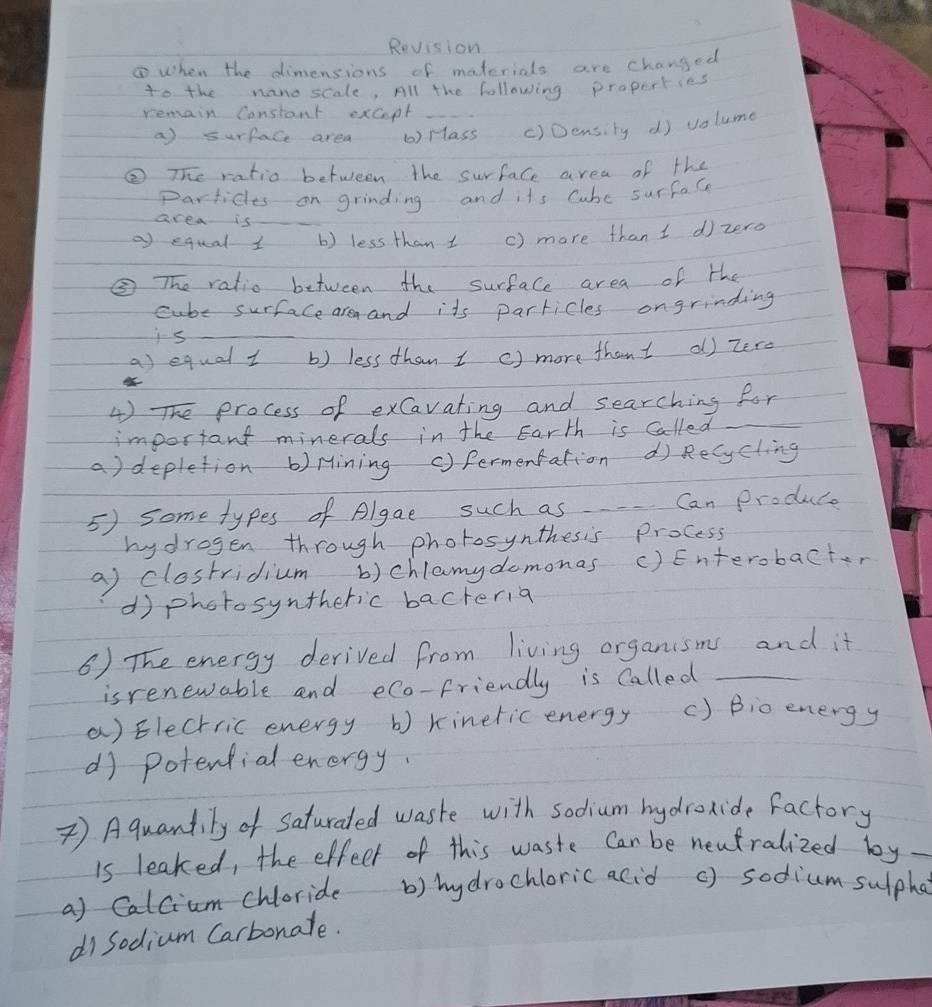 Revision
① When the dimensions of materials are changed
to the nano scale, All the following properties
remain Constant except ----
a) surface area b) Mass c) Density d) volume
② The ratio between the surface area of the
Particles on grinding and its Cube surface
area is ____
a) equal 1 b) less than 1 c) more than 1 d) zero
③ The ratio between the surface area of the
Cube surface area and its particles on grinding
is ____
a) equal 1 b) less than 1 c) more than 1 d) Zero
4) The process of exCavating and searching for
important minerals in the Earth is Called ____
a) depletion b) Mining c) fermentation d) ReCycling
5) Some types of Algae such as ---- Can Produce
hydrogen through photosynthesis ProCess
a) Clostridium b) Chlamydomonas c) Enterobacter
d) photosynthetic bacteria
6) The energy derived from living organisms and it
is renewable and eco-friendly is Called ____
a) Electric energy b) Kinetic energy c) Bio energy
d) Potential energy.
7) A quantity of saturated waste with sodium hydroxide factory
Is leaked, the effect of this waste Can be neutralized by _
a) Calcium Chloride b) hydrochloric acid c) sodium sulphat
d) Sodium Carbonate.